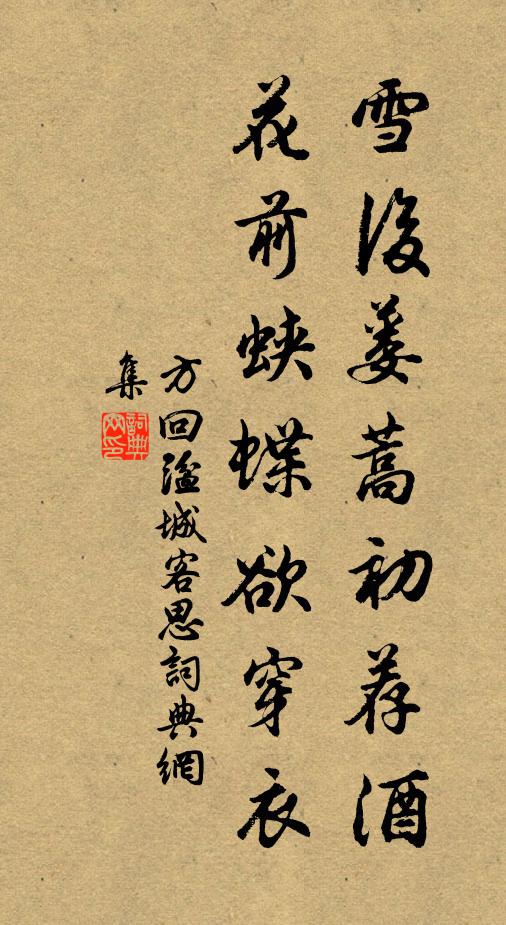 雪後蔞蒿初荐酒
花前蛺蝶欲穿衣
方回湓城客思詞典網
集
詞典網印